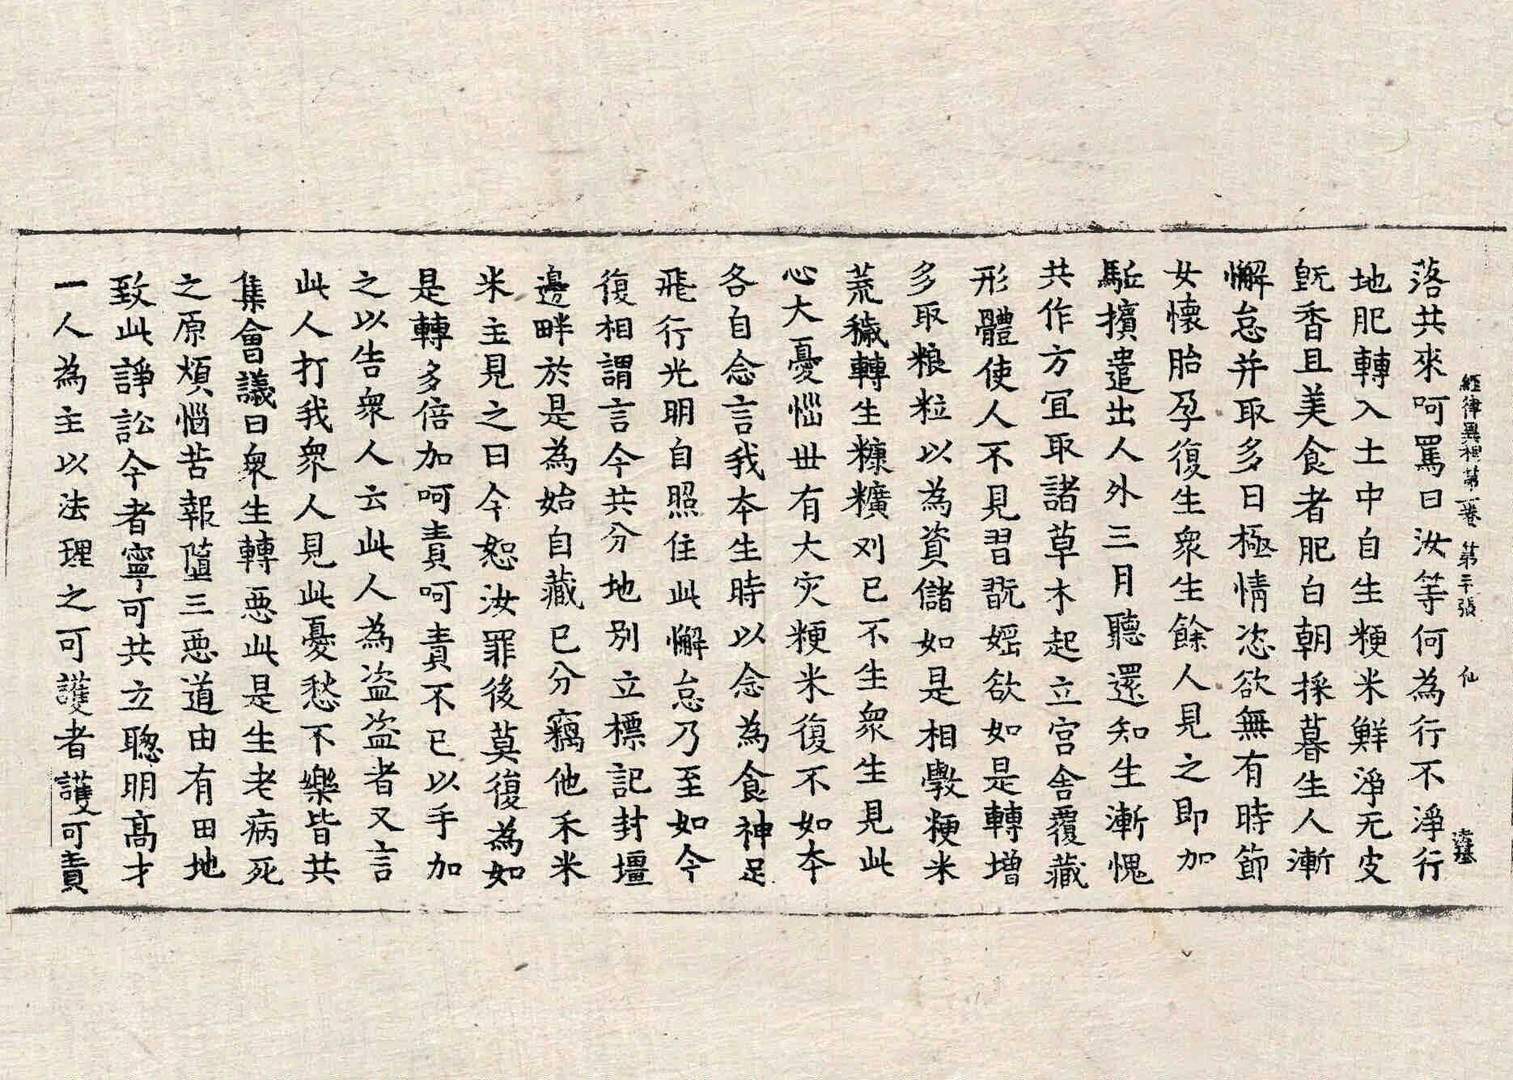 經律異相第一卷 第二十張 仙
落共來呵罵曰汝等何為行不淨行
地肥轉入土中自生粳米鮮淨无皮
旣香且美食者肥白朝採暮生人漸
懈怠并取多日極情恣欲無有時節
女懷胎孕復生衆生餘人見之即加
駈擯遣出人外三月聽還知生漸愧
共作方冝取諸草木起立宫舍覆藏
形體使人不見習翫婬欲如是轉增
多取粮粒以為資儲如是相斆粳米
荒穢轉生糠糩刈已不生衆生見此
心大憂惱世有大灾粳米復不如本
各自念言我本生時以念為食神足
飛行光明自照住此懈怠乃至如今
復相謂言今共分地別立標記封壃
邊畔於是為始自藏已分竊他禾米
米主見之曰今恕汝罪後莫復為如
是轉多倍加呵責呵責不已以手加
之以告衆人云此人為盗盗者又言
此人打我衆人見此憂愁不樂皆共
集會議曰衆生轉惡此是生老病死
之原煩惱苦報墮三惡道由有田地
致此諍訟今者寧可共立聦明髙才
一人為主以法理之可護者護可責